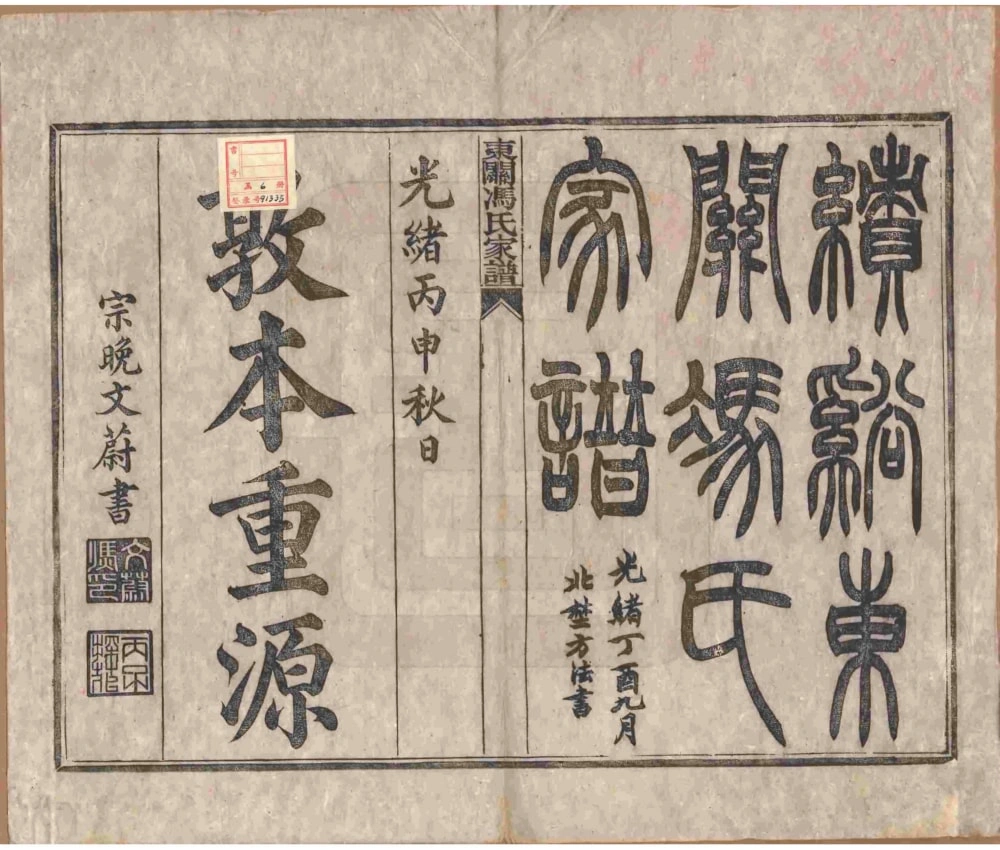 績谿東
關馮氏
家譜
光緒丁酉九月
北埜方法書
東關馮氏家譜
光緒丙申秋日
敦本重源
宗晚文蔚書
文蔚馮印
丙子探花
書號
共 6 册
登錄号91335